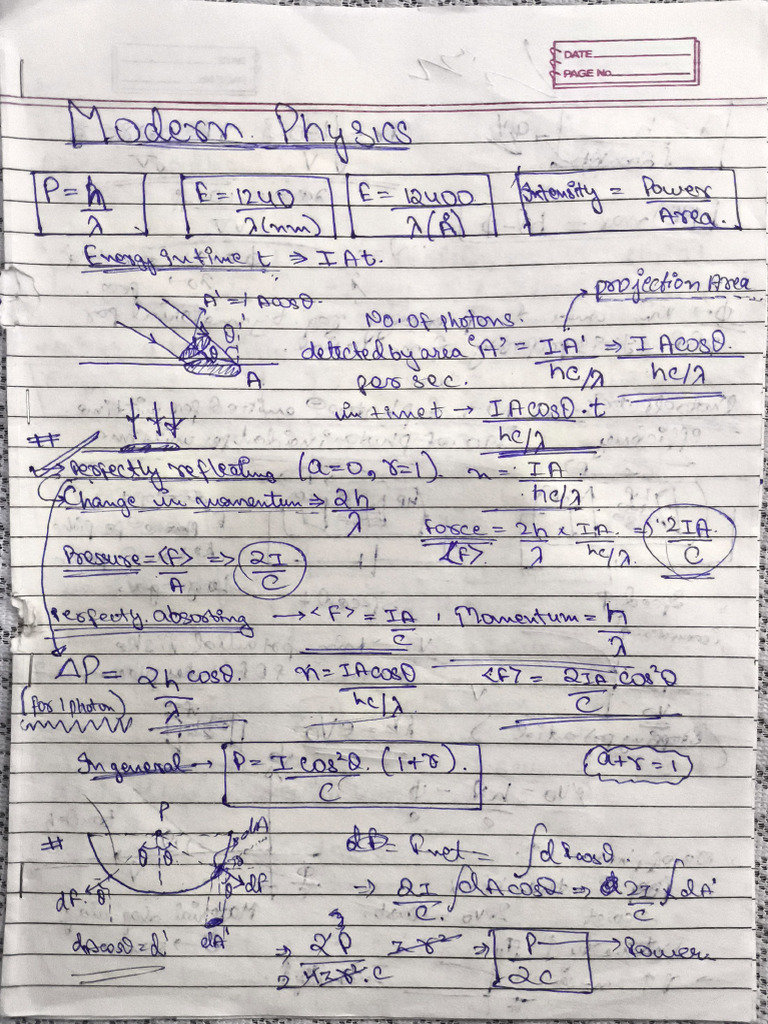 DATE
PAGE No.
Modern Physics
P = h/λ   E = 1240/λ(nm)   E = 12400/λ(Å)   Intensity = Power/Area.
Energy in time t ⇒ IAt.
→ projection Area
A' = Acosθ.
θ
θ
A
No. of photons.
detected by area 'A' = IA'/hc/λ ⇒ IAcosθ./hc/λ
per sec.
in time t → IAcosθ.t/hc/λ
##
→ Perfectly reflecting (a=0, r=1) n = IA/hc/λ
→ Change in momentum ⇒ 2h/λ
Force = 2h/λ × IA/hc/λ ⇒ 2IA/C
<F>
Presure = <F>/A ⇒ 2I/C
Perfecty absorbing → <F> = IA/C , Momentum = h/λ
ΔP = 2h/λ cosθ. n = IAcosθ/hc/λ <F> = 2IA/C cos²θ
(for 1 photon)
In general → P = I cos²θ/C . (1+r). a+r=1
#
P
θ θ
dA
dF θ
θ dF
dA'
dAcosθ = d'
Fnet = ∫dFcosθ
⇒ 2I/C ∫dAcosθ ⇒ 2I/C ∫dA'
⇒ P/2C → Power